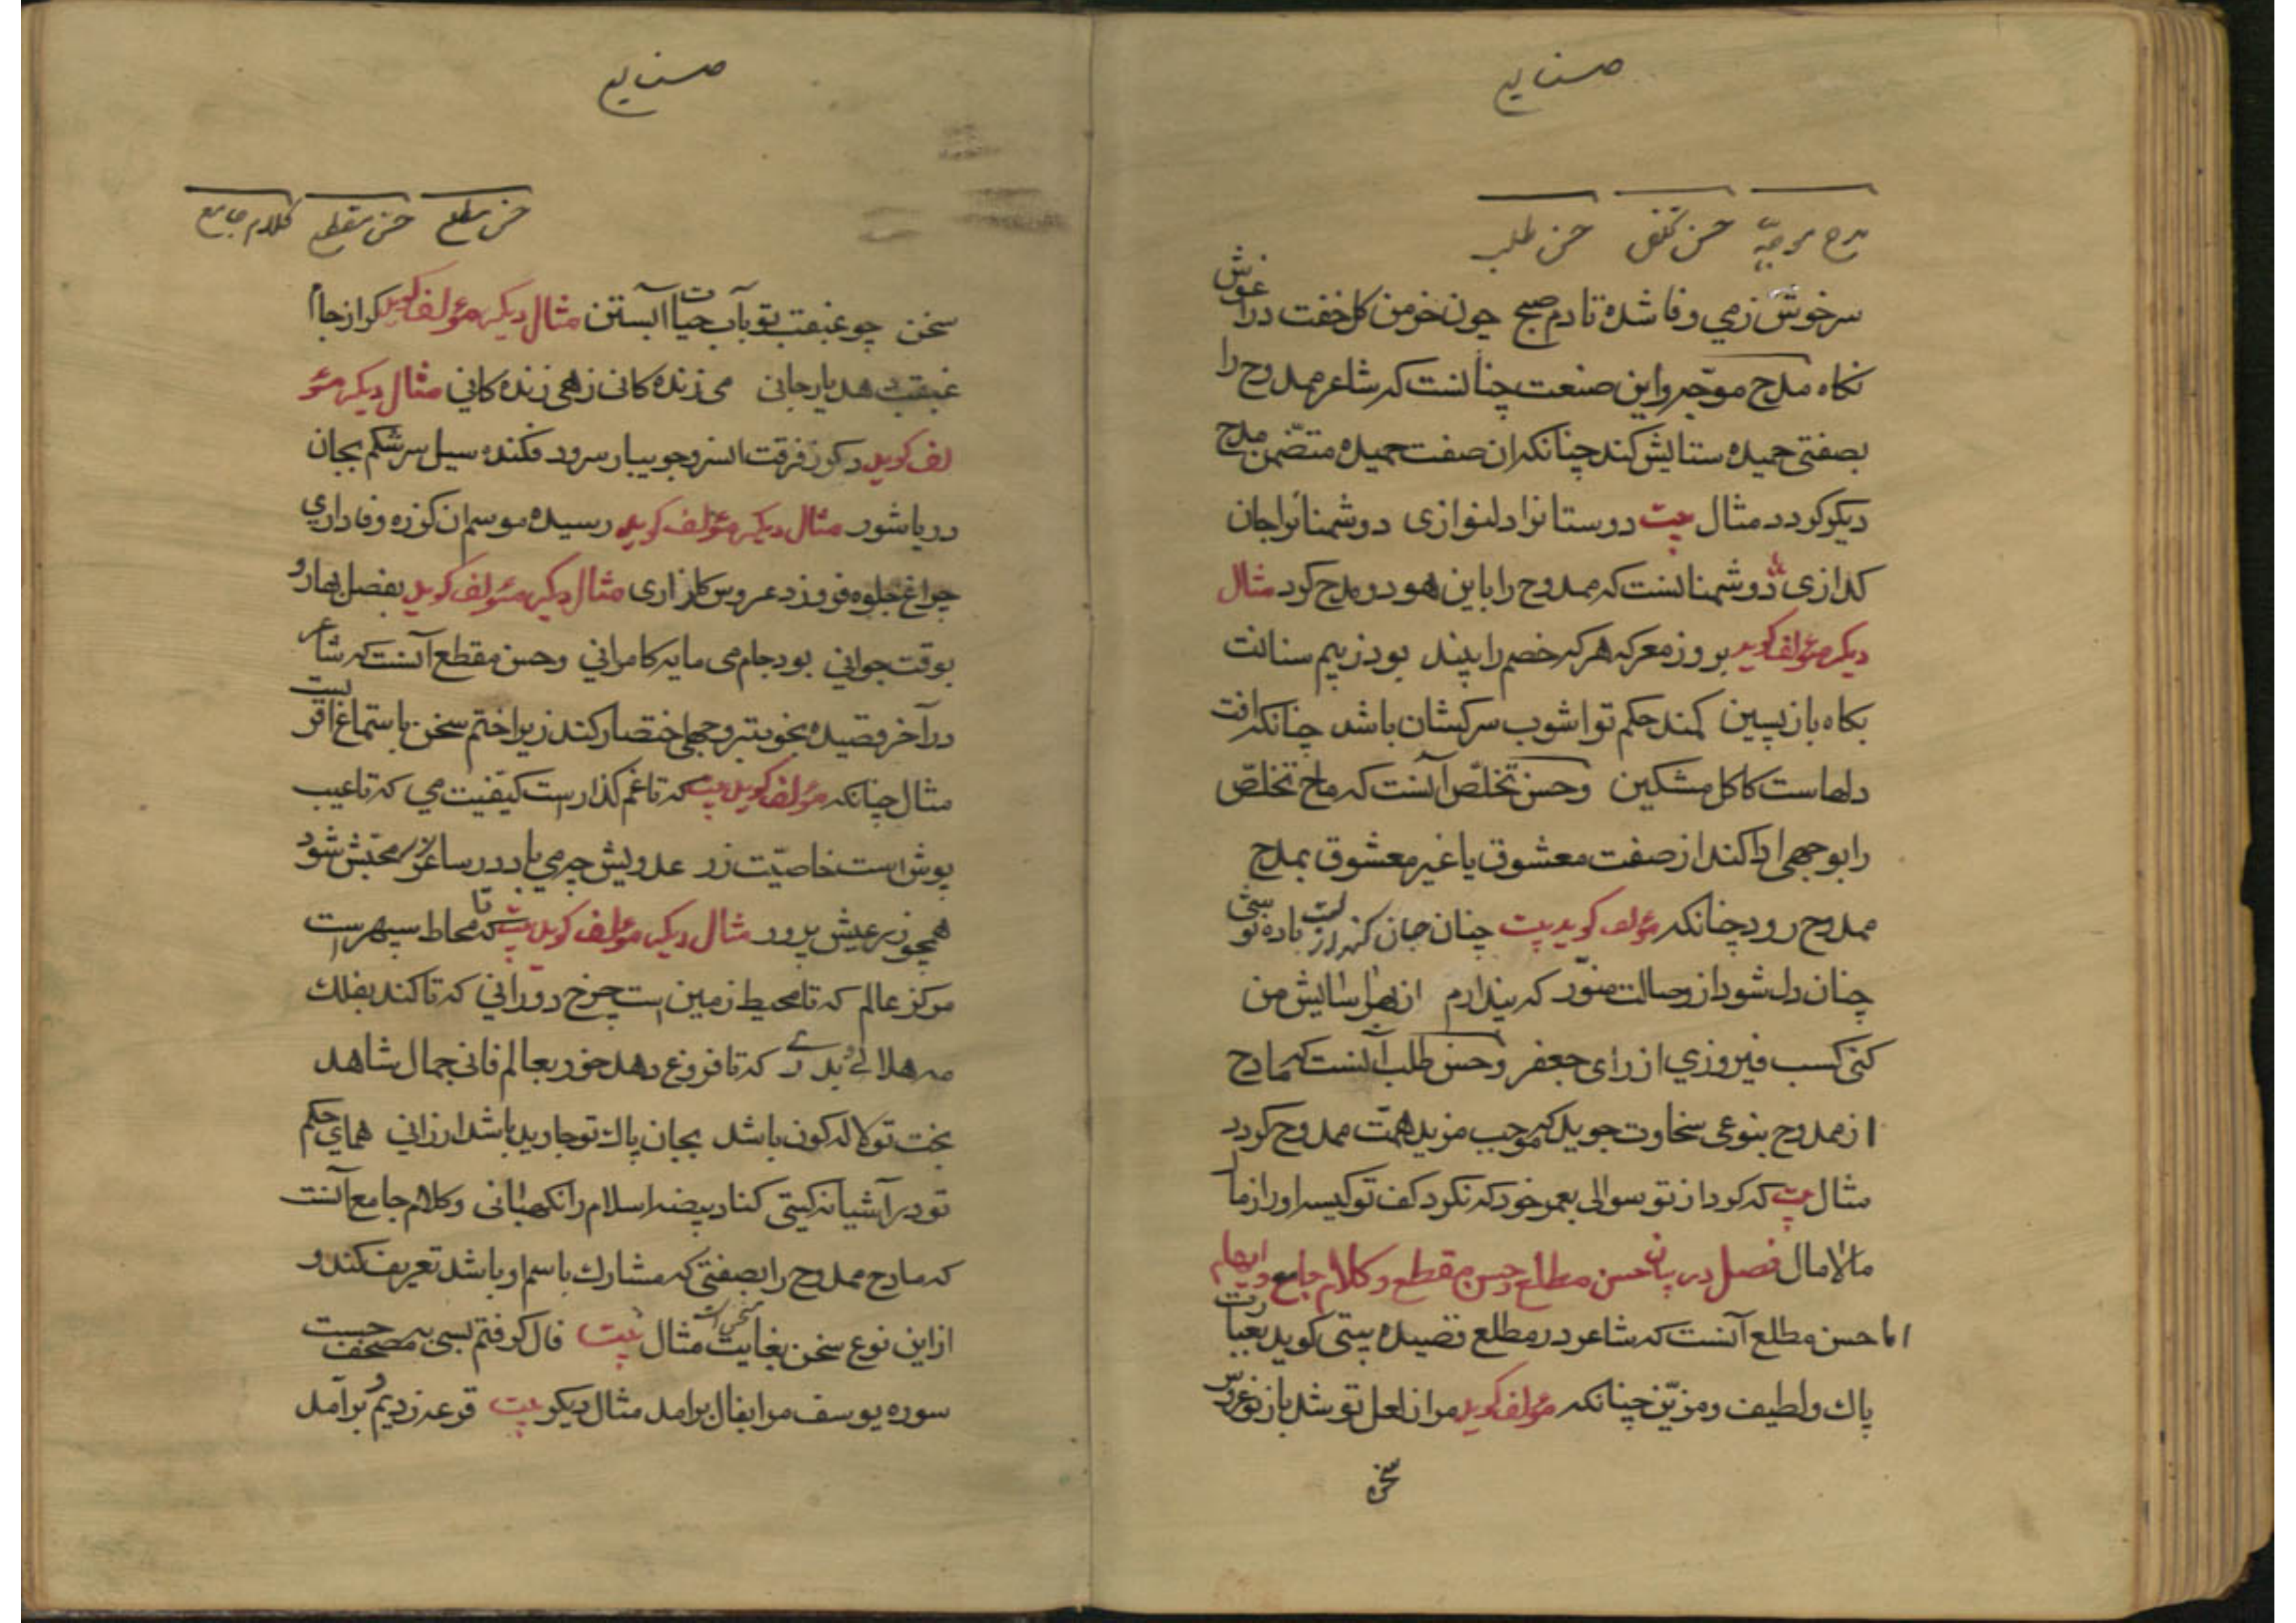 صنایع
مدح موجّه حسن تخلص حسن طلب
سرخوش زمی وفا شده تا دم صبح چون خرمن کل خفت در اغوش
نکاه مدح موجّه و این صنعت چنانست که شاعر ممدوح را
بصفتی حمیده ستایش کند چنانکه ان صفت حمیده متضمّن مدح
دیکر کردد مثال بیت دوستانرا دلنوازی دوشمنانرا جان
کدازی دوشمنانست که ممدوح را باین هر دو مدح کرد مثال
دیکر مؤلف کوید بروز معرکه هر که خصم را بیند بود زبیم سنانت
بکاه بازپسین کمند حکم تو اشوب سرکشان باشد چنانکه افت
دلهاست کاکل مشکین وحسن تخلّص آنست که مادح تخلّص
را بوجهی ادا کند از صفت معشوق یا غیر معشوق بمدح
ممدوح رود چنانکه مؤلف کوید بیت چنان جان باده نوشی
چنان دل شود از وصالت منوّر که پندارم از بهر اسایش من
کنی کسب فیروزی از رای جعفر وحسن طلب آنست که مادح
از ممدوح بنوعی سخاوت جوید که موجب مزید همّت ممدوح کردد
مثال بیت که کرد از تو سوالی بعمر خود که نکرد کف تو کیسه او را زما
مالامال فصل در بیان حسن مطلع وحسن مقطع وکلام جامع وایهام
اما حسن مطلع آنست که شاعر در مطلع قصیده بیتی کوید بعبارت
پاک ولطیف ومزیّن چنانکه مؤلف کوید مرا از لعل تو شد باز نوعروس
سخن
صنایع
حسن مطلع حسن مقطع کلام جامع
سخن چو غبغبت بتو بآب حیات آبستن مثال دیکر مؤلف کوید کر از جام
غبغبت دهد یار جانی می زنده کانی زهی زنده کانی مثال دیکر مؤ
لف کوید دکر ز فرقت ان سرو جویبار سرود فکنده سیل سرشکم بجان
دریا شور مثال دیکر مؤلف کوید رسیده موسم ان کز ره وفاداری
چراغ جلوه فروزد عروس کلزاری مثال دیکر مؤلف کوید بفصل بهار و
بوقت جوانی بود جام می مایه کامرانی وحسن مقطع آنست که شاعر
در آخر قصیده بخوبتر وجهی اختصار کند زیرا ختم سخن باستماع اقربست
مثال چنانکه مؤلف کوید بیت که تا غم کذارست کیفیت می که تا عیب
پوش است خاصیّت زر عدویش چو می باد در ساغر شود
همچو زر عیش پرور مثال دیکر مؤلف کوید بیت که تا محاط سپهر است
مرکز عالم که تا محیط زمین است چرخ دورانی که تا کند بفلک
مه هلالی وبدری که تا فروغ دهد خور بعالم فانی جمال شاهد
بخت تو لاله کون باشد بجان پاک تو جاوید باشد ارزانی همای حکم
تو در آشیانه کیتی کناد بیضه اسلام را نکهبانی وکلام جامع آنست
که مادح ممدوح را بصفتی که مشارک باسم او باشد تعریف کند و
از این نوع سخن بغایت مثال بیت فال کرفتم بسی به مصحف حسنت
سوره یوسف مرا بفال برآمد مثال دیکر بیت قرعه زدیم وبرآمد